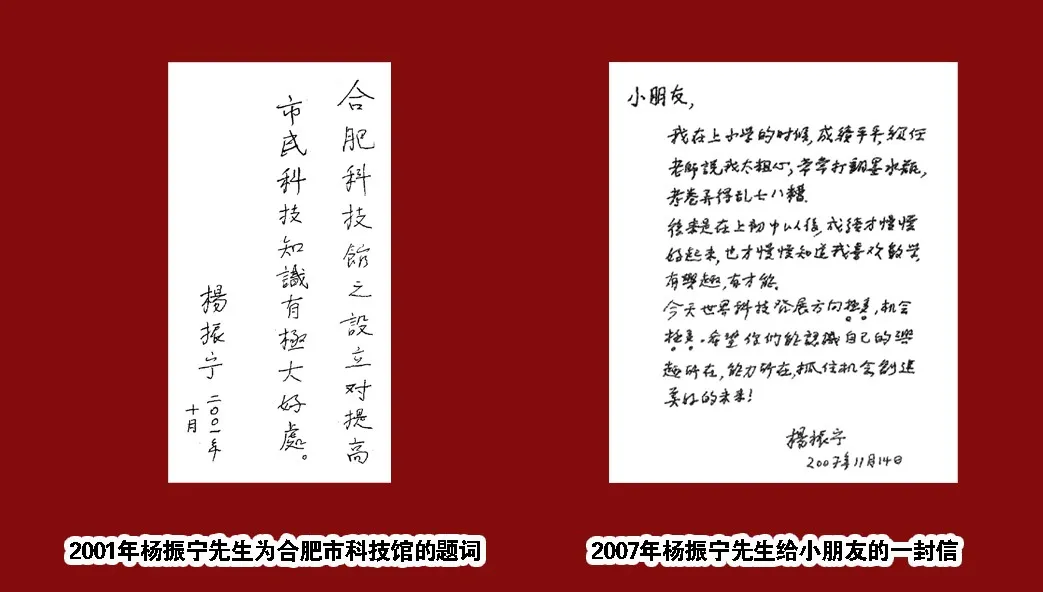 合肥科技館之設立对提高
市民科技知識有極大好處。
楊振宁
二〇〇一年
十月
小朋友,
我在上小学的时候,成績平平,级任
老師説我太粗心,常常打翻墨水瓶,
考卷弄得乱七八糟.
後来是在上初中以後,成績才慢慢
好起来,也才慢慢知道我喜欢数学,
有興趣,有才能.
今天世界科技發展方向極多,机会
極多.希望你们能認識自己的興
趣所在,能力所在,抓住机会創造
美好的未来!
楊振宁
2007年11月14日
2001年杨振宁先生为合肥市科技馆的题词
2007年杨振宁先生给小朋友的一封信